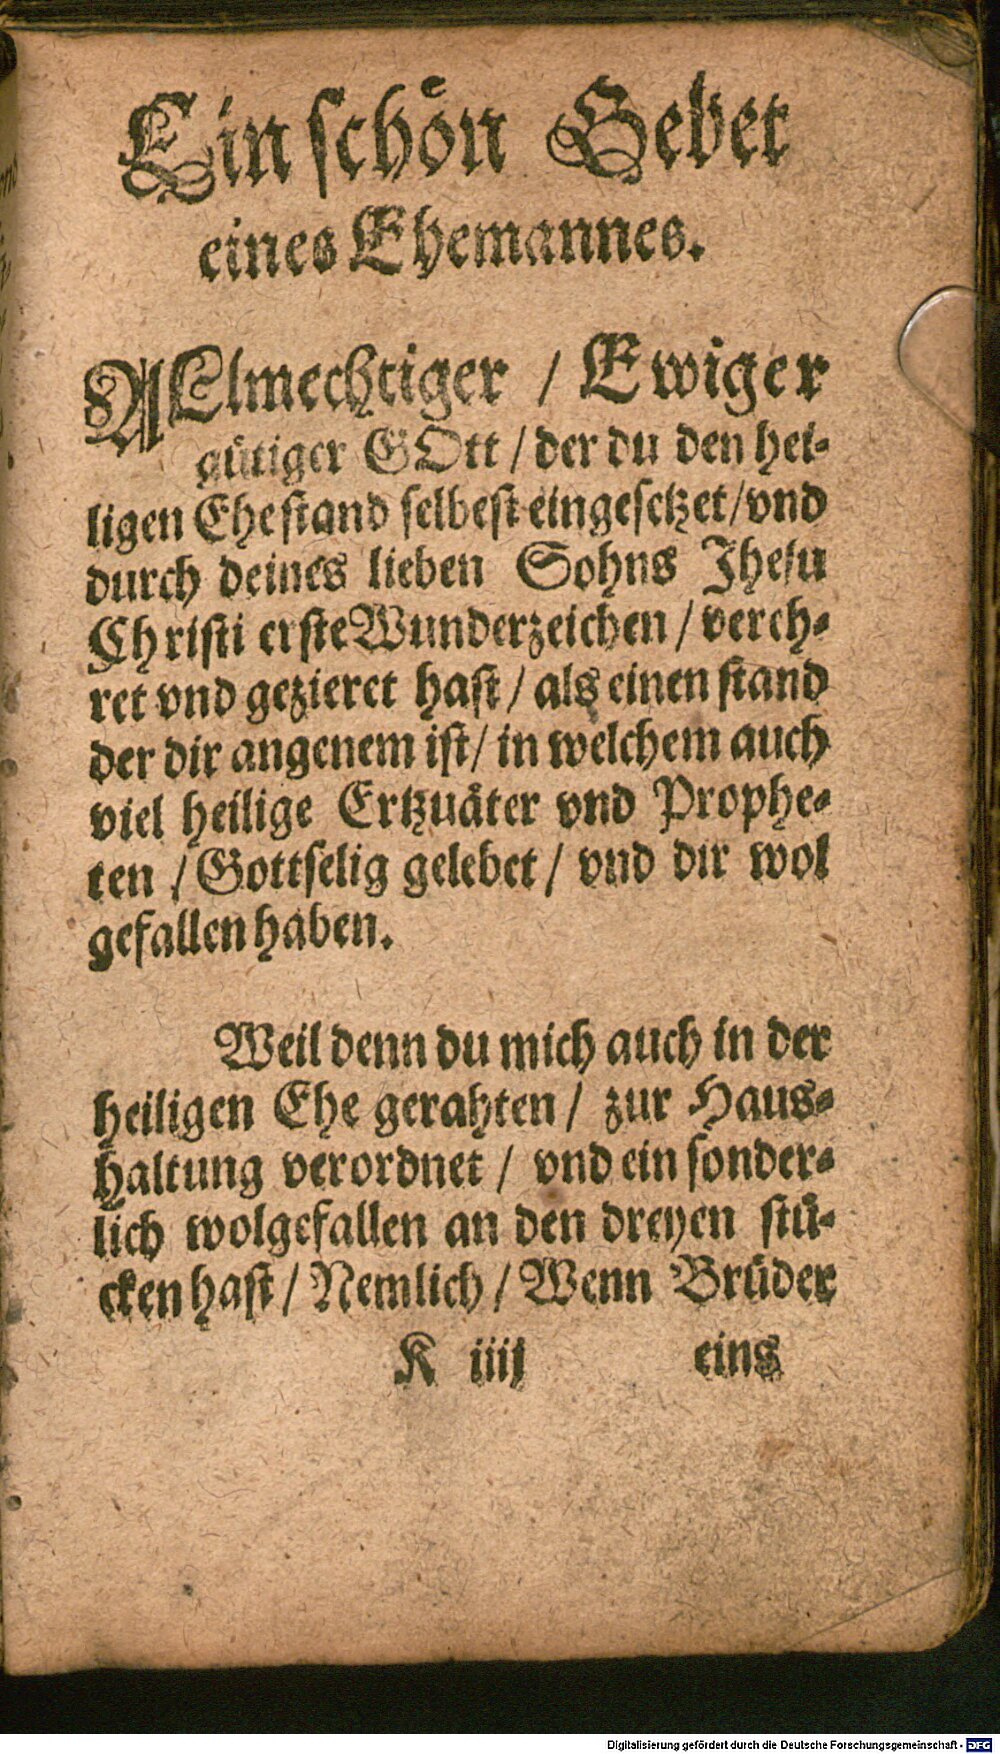 Ein schön Gebet
eines Ehemannes.
ALlmechtiger / Ewiger
gütiger GOtt / der du den hei-
ligen Ehestand selbest eingesetzet / vnd
durch deines lieben Sohns Jhesu
Christi erste Wunderzeichen / vereh-
ret vnd gezieret hast / als einen stand
der dir angenem ist / in welchem auch
viel heilige Ertzuäter vnd Prophe-
ten / Gottselig gelebet / vnd dir wol
gefallen haben.
Weil denn du mich auch in der
heiligen Ehe gerahten / zur Haus-
haltung verordnet / vnd ein sonder-
lich wolgefallen an den dreyen stü-
cken hast / Nemlich / Wenn Brüder
K iiij eins
Digitalisierung gefördert durch die Deutsche Forschungsgemeinschaft - DFG